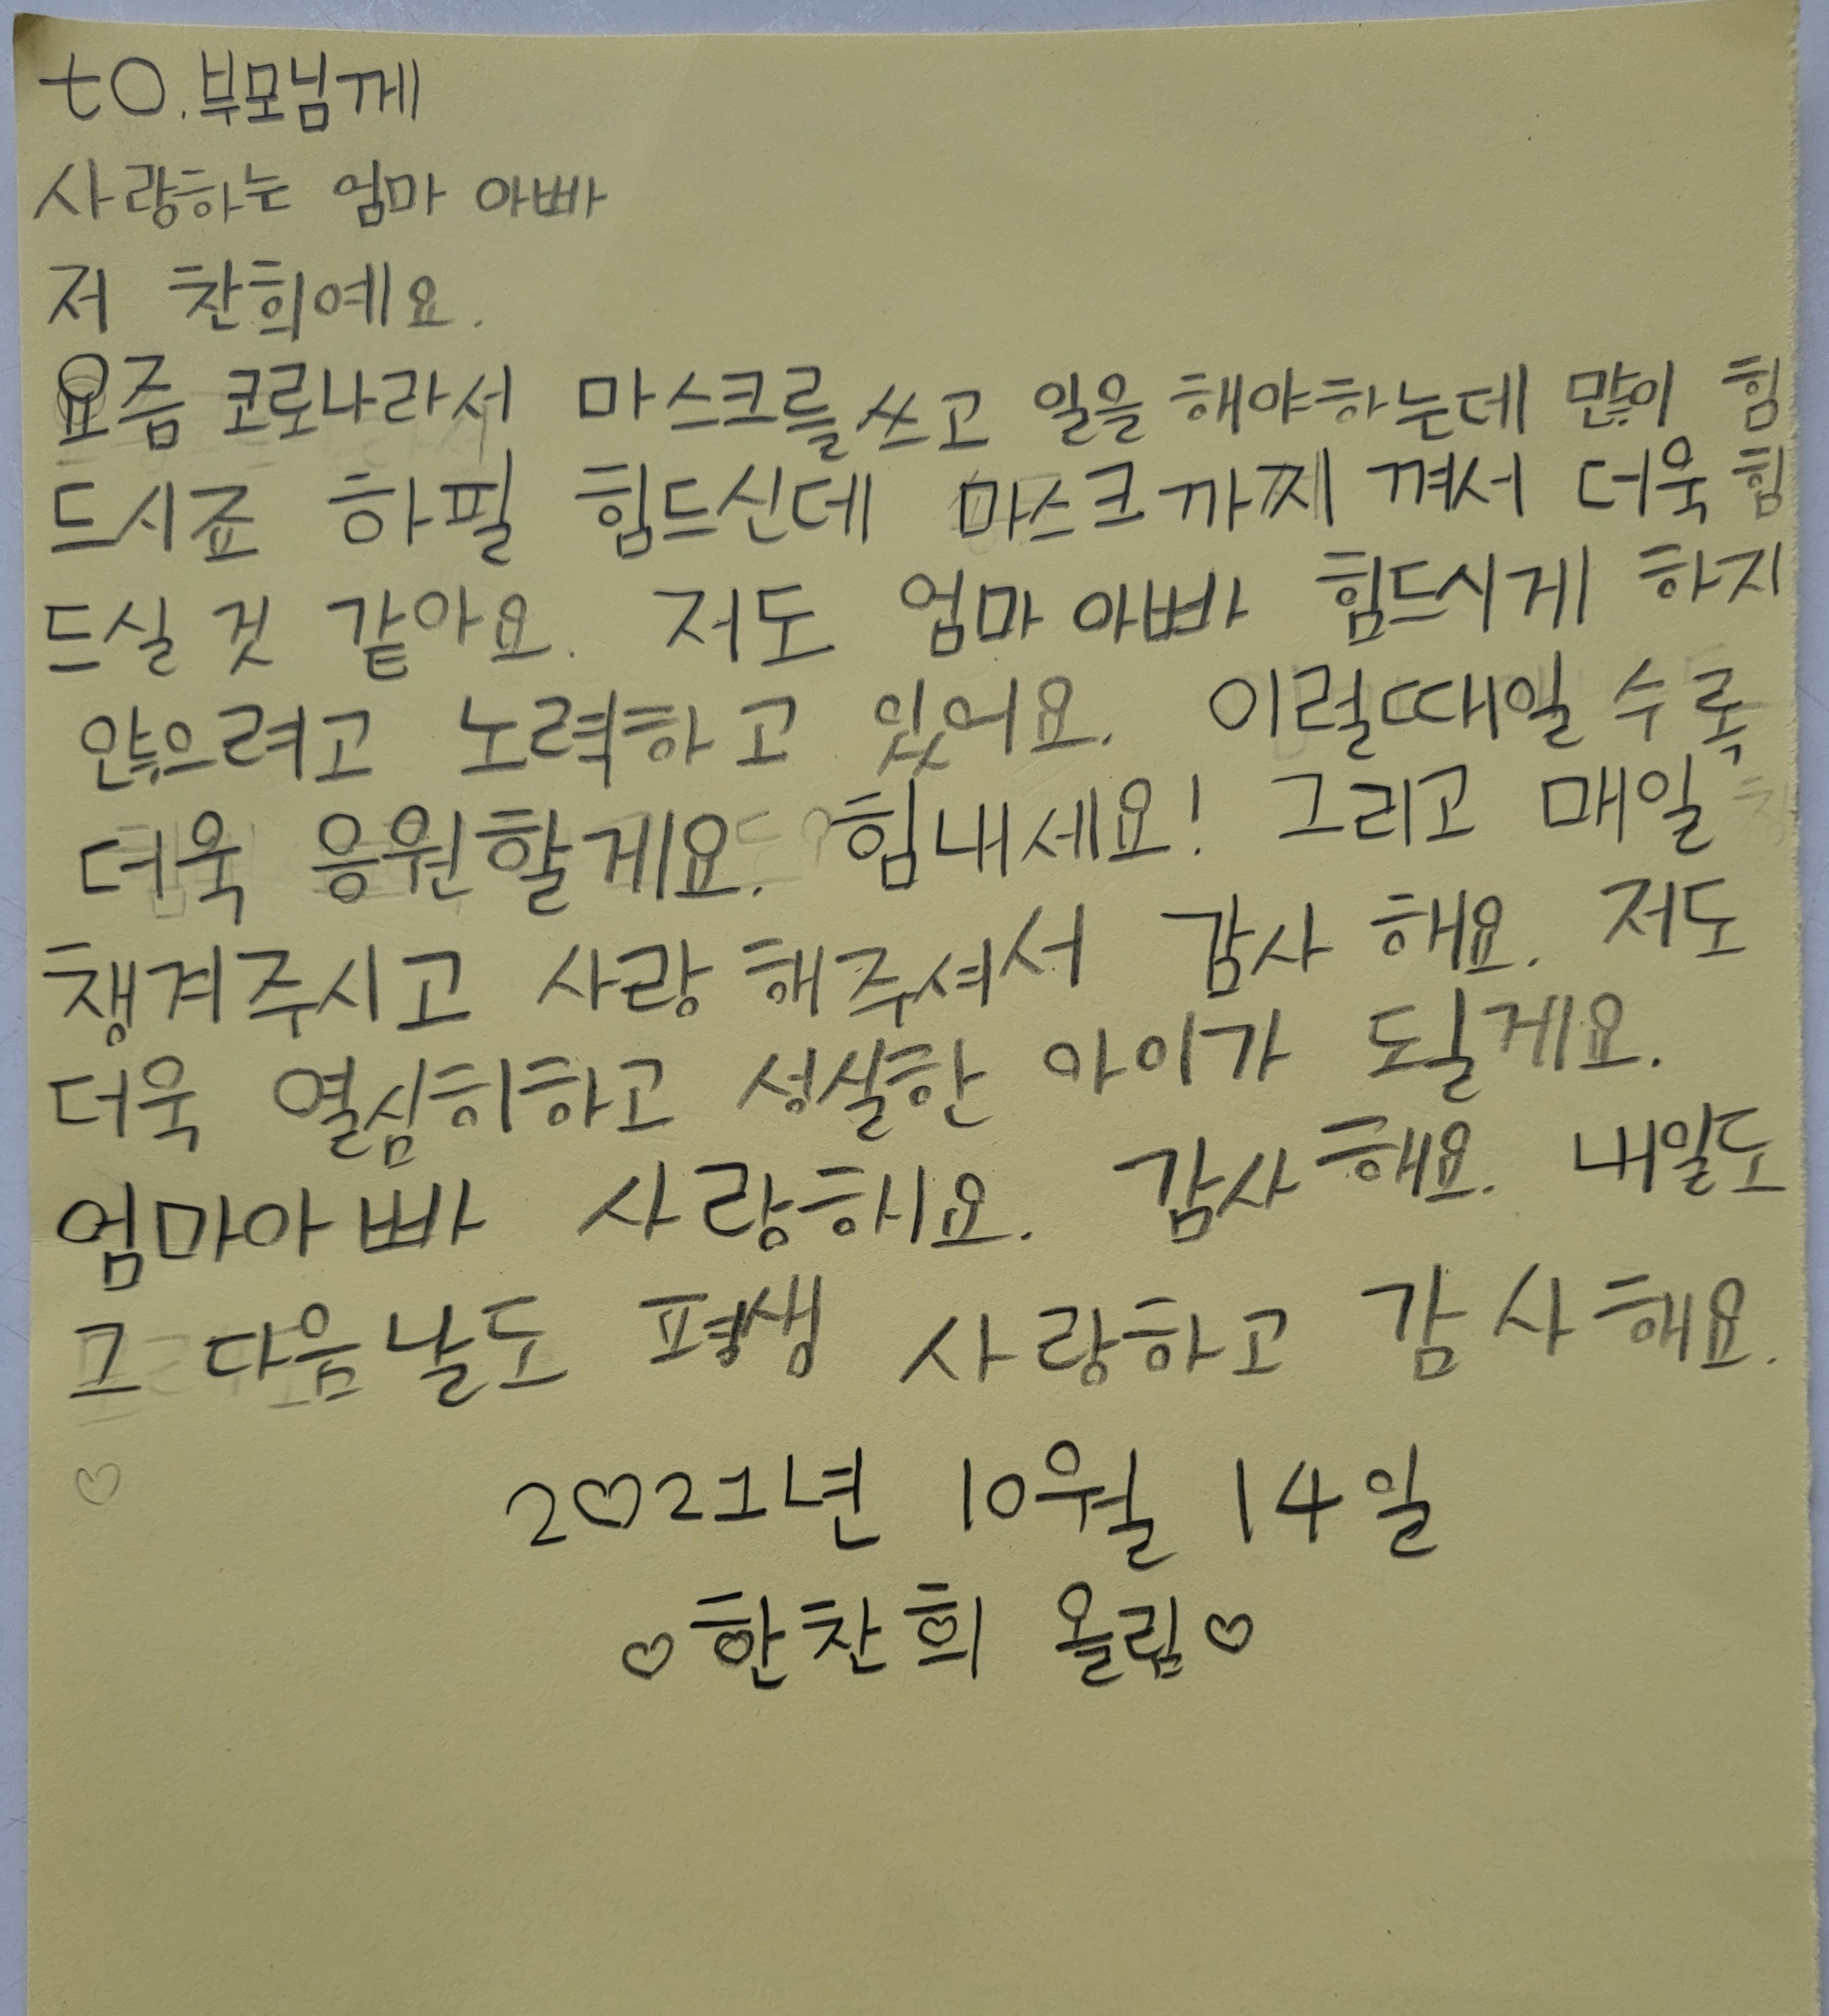 to.부모님께
사랑하는 엄마 아빠
저 찬희예요.
요즘 코로나라서 마스크를 쓰고 일을 해야하는데 많이 힘
드시죠 하필 힘드신데 마스크까지 껴서 더욱 힘
드실 것 같아요. 저도 엄마 아빠 힘드시게 하지
않으려고 노력하고 있어요. 이럴때일 수록
더욱 응원할게요. 힘내세요! 그리고 매일
챙겨주시고 사랑해주셔서 감사해요. 저도
더욱 열심히하고 성실한 아이가 될게요.
엄마아빠 사랑해요. 감사해요. 내일도
그 다음날도 평생 사랑하고 감사해요.
♡
2♡21년 10월 14일
♡한찬희 올림♡